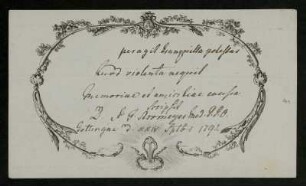 peragit tranquilla potestas
quod violenta nequit
Memoriae et amicitiae causa
scripsit
D. A. G.
Gottingae d. XXIV 1792